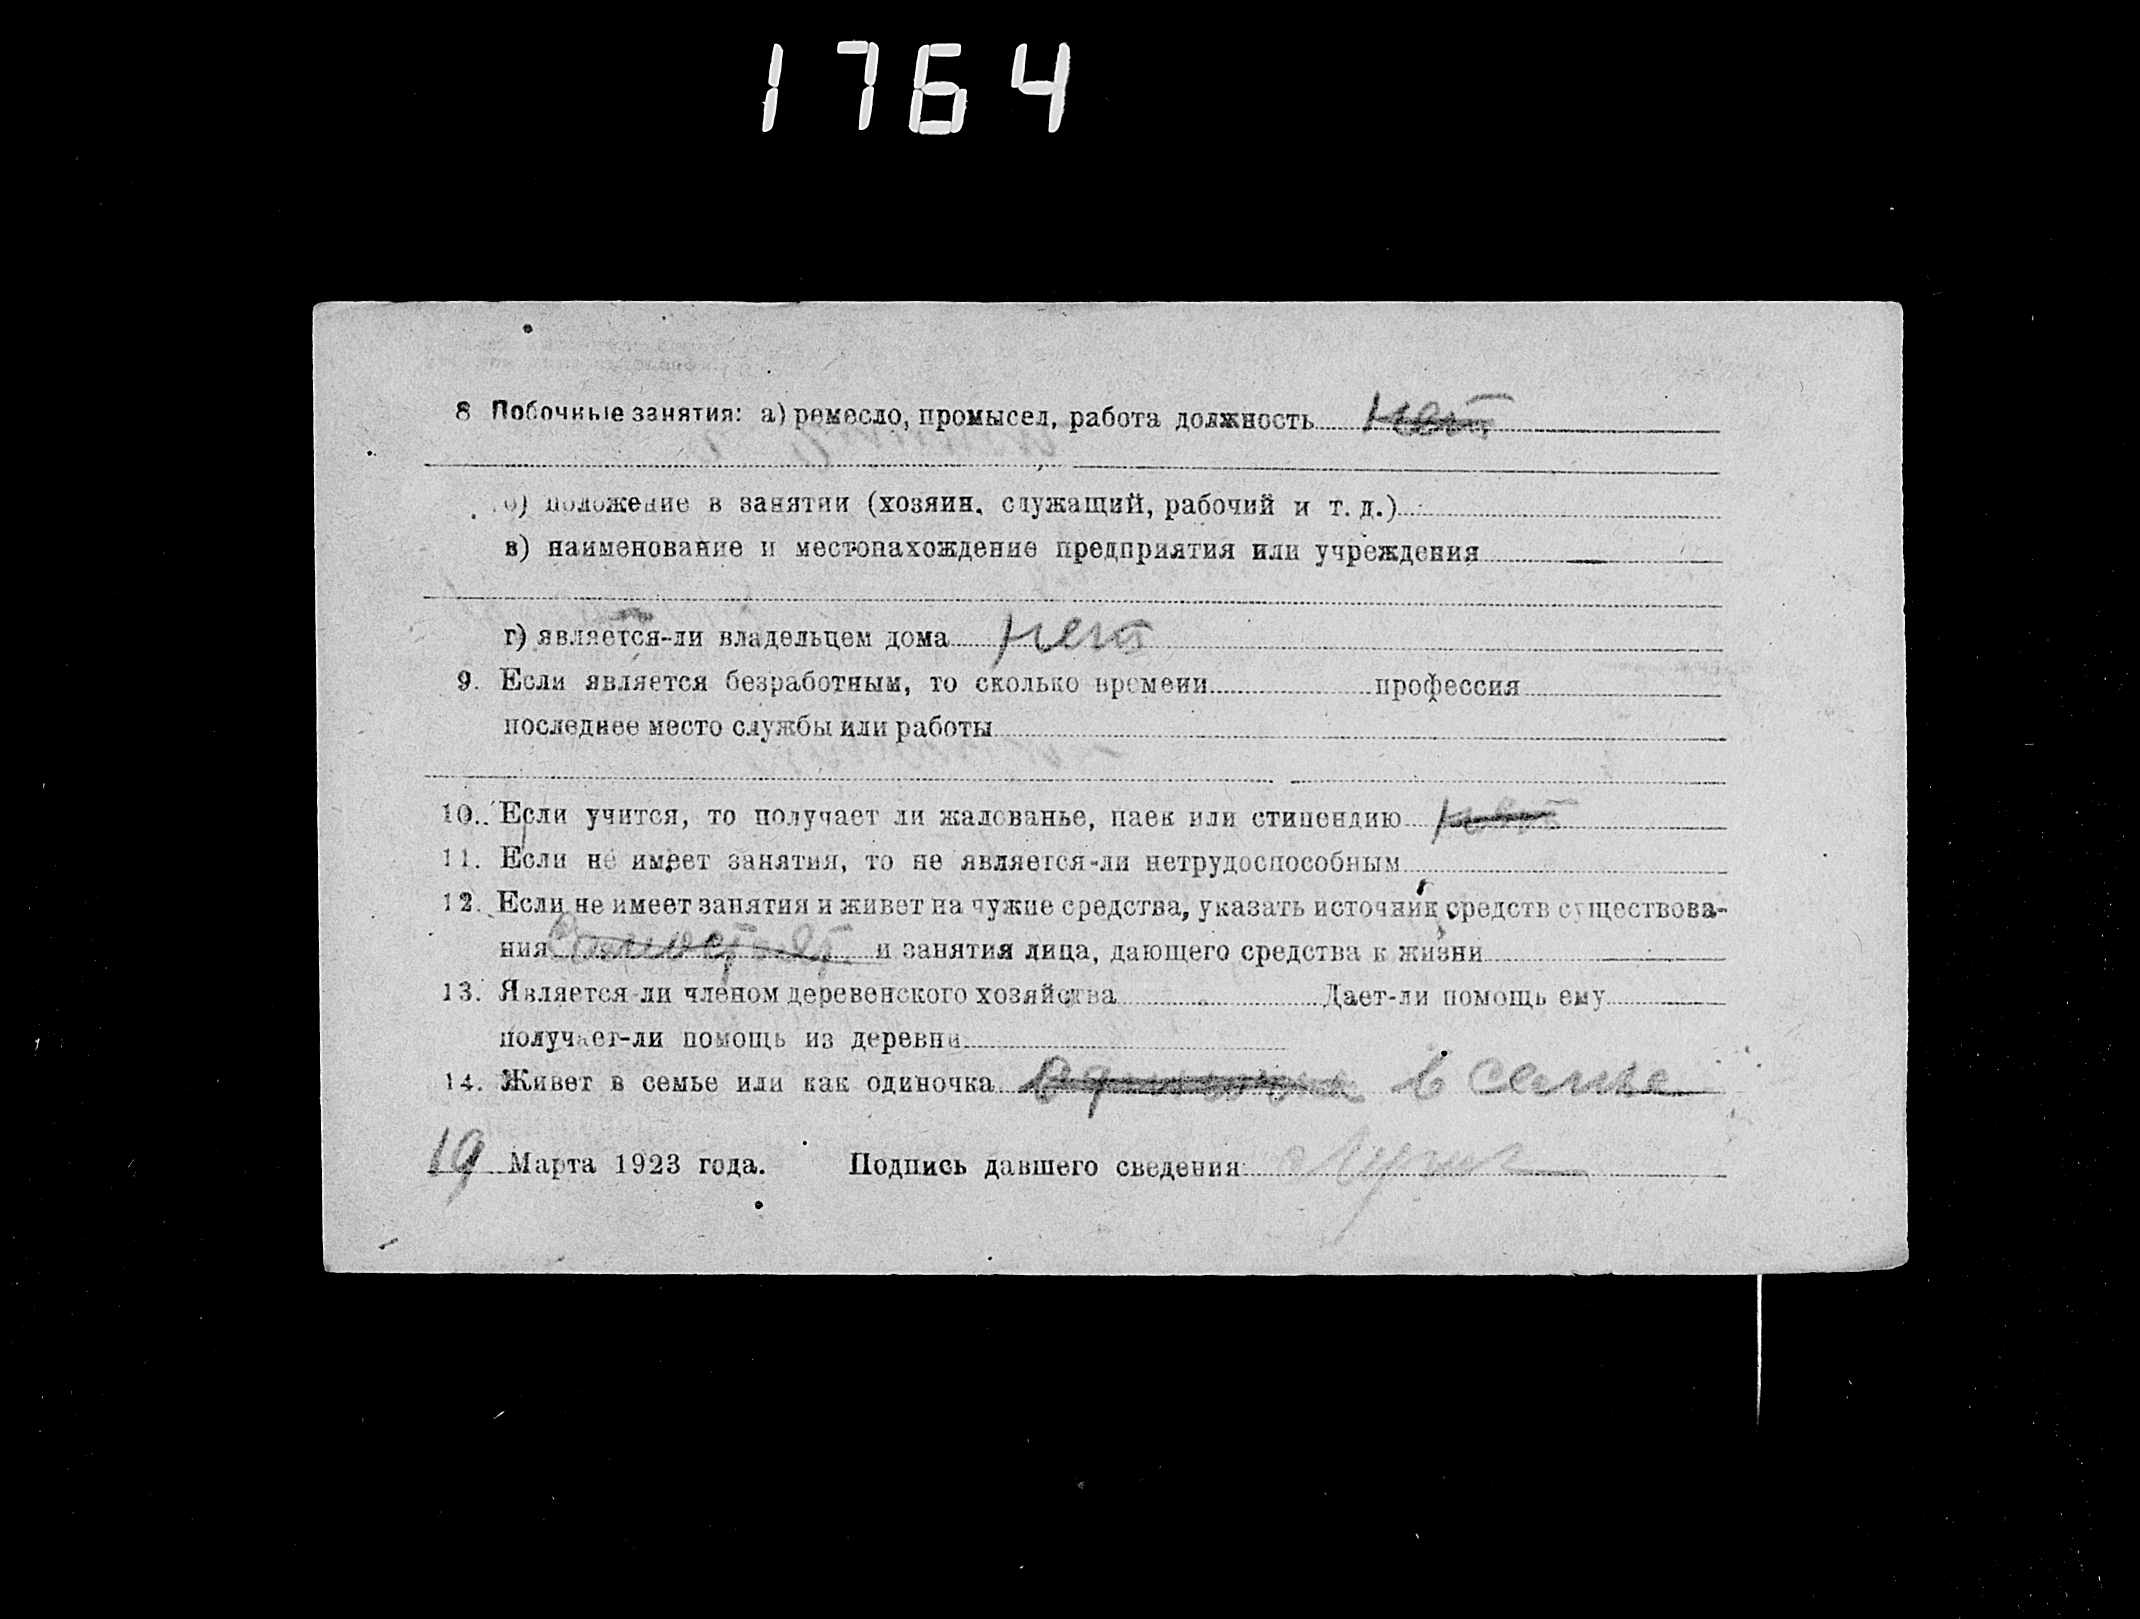 1764
8 Побочные занятия: а) ремесло, промысел, работа должность нет
б) положение в занятии (хозяин, служащий, рабочий и т. д.)
в) наименование и местонахождение предприятия или учреждения
г) является-ли владельцем дома нет
9. Если является безработным, то сколько времени профессия
последнее место службы или работы
10. Если учится, то получает ли жалованье, паек или стипендию нет
11. Если не имеет занятия, то не является-ли нетрудоспособным
12. Если не имеет занятия и живет на чужие средства, указать источник средств существова-
ния и занятия лица, дающего средства к жизни
13. Является-ли членом деревенского хозяйства Дает-ли помощь ему
получает-ли помощь из деревни
14. Живет в семье или как одиночка одиночка в семье
19 Марта 1923 года. Подпись давшего сведения